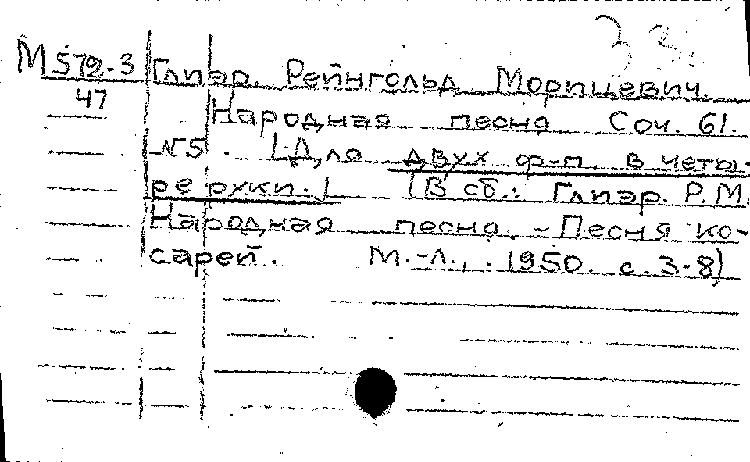 33
М 572-3 Глиэр. Рейнгольд Морицевич.
47
Народная песня Соч. 61.
№5. [Для двух ф-п. в четы-
ре руки.] (В сб.: Глиэр. Р.М.
Народная песня. - Песня ко-
сарей. М.-Л., 1950. с. 3-8)